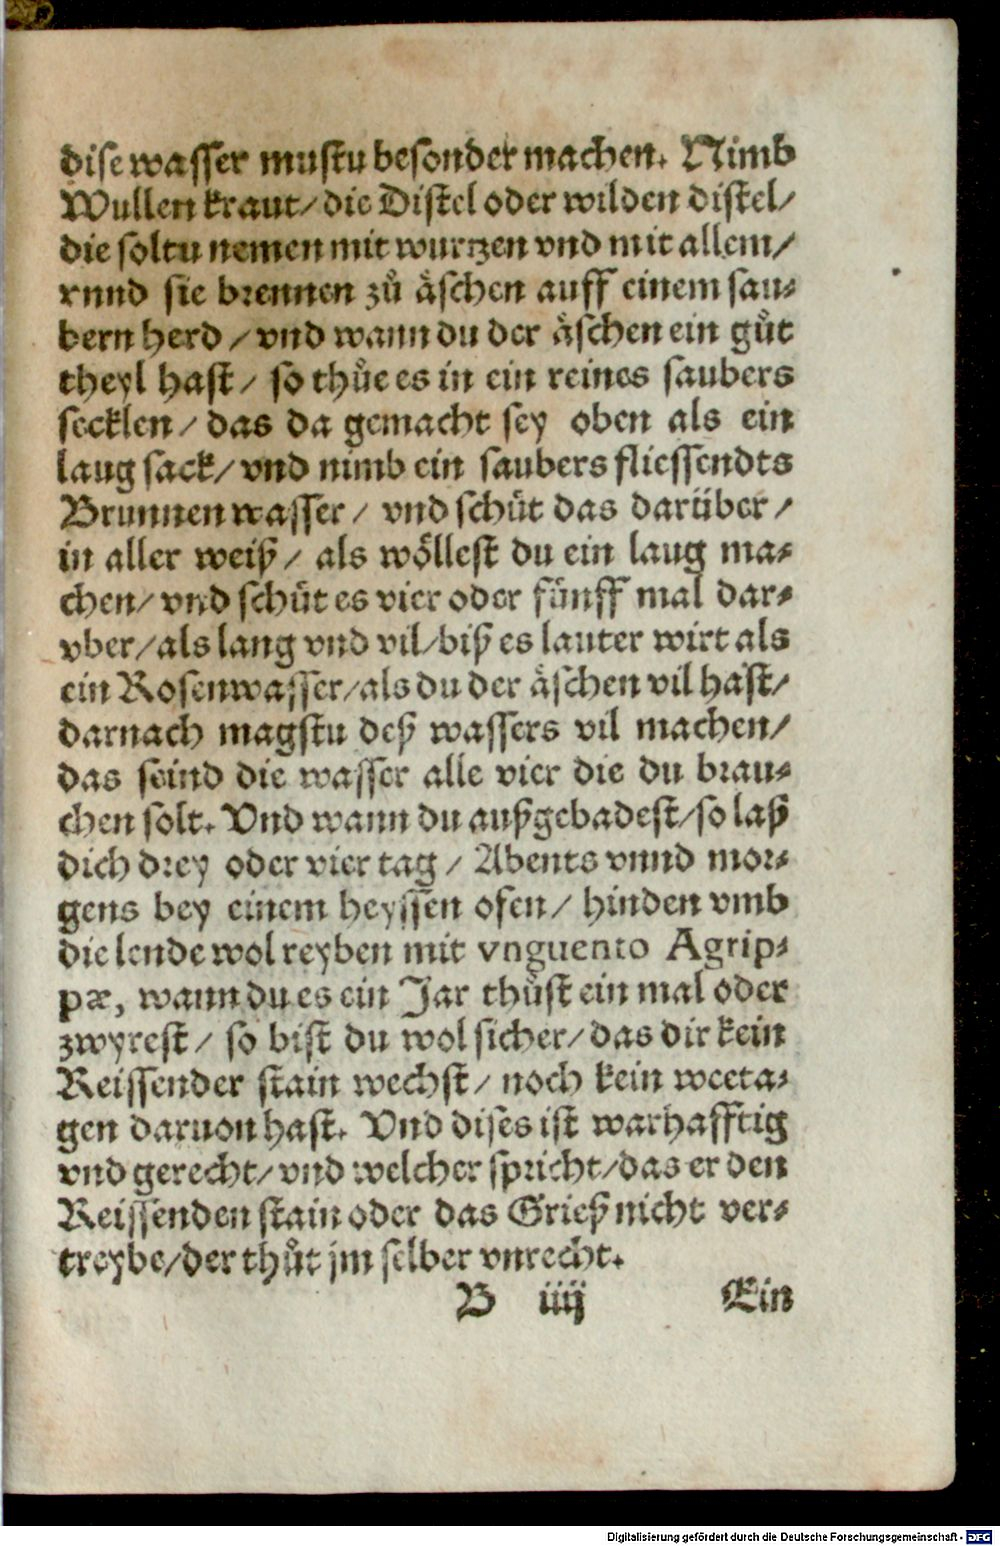 dise wasser mustu besonder machen. Nimb
Wullen kraut/ die Distel oder wilden distel/
die soltu nemen mit wurtzen vnd mit allem/
vnnd sie brennen zů äschen auff einem sau-
bern herd / vnd wann du der äschen ein gůt
theyl hast / so thůe es in ein reines saubers
secklen / das da gemacht sey oben als ein
laug sack/ vnd nimb ein saubers fliessendts
Brunnen wasser / vnd schüt das darüber /
in aller weiß / als wöllest du ein laug ma-
chen/ vnd schüt es vier oder fünff mal dar-
vber/ als lang vnd vil/ biß es lauter wirt als
ein Rosenwasser/ als du der äschen vil hast/
darnach magstu deß wassers vil machen/
das seind die wasser alle vier die du brau-
chen solt. Vnd wann du außgebadest/ so laß
dich drey oder vier tag / Abents vnnd mor-
gens bey einem heyssen ofen / hinden vmb
die lende wol reyben mit vnguento Agrip-
pæ, wann du es ein Jar thůst ein mal oder
zwyrest / so bist du wol sicher/ das dir kein
Reissender stain wechst / noch kein weeta-
gen daruon hast. Vnd dises ist warhafftig
vnd gerecht/ vnd welcher spricht/ das er den
Reissenden stain oder das Grieß nicht ver-
treybe/ der thůt jm selber vnrecht.
B iiij Ein
Digitalisierung gefördert durch die Deutsche Forschungsgemeinschaft - DFG